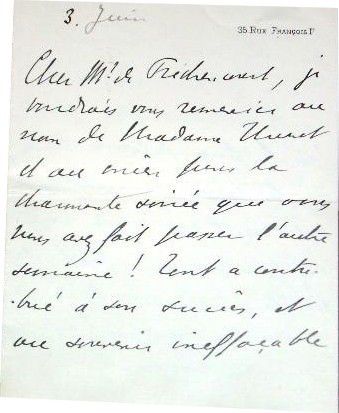 3. Juin
35 RUE FRANÇOIS Ier
Cher Mr. de, je
voudrais vous remercier au
nom de Madame
et au mien pour la
charmante soirée que vous
nous avez fait passer l'autre
semaine ! Tout a contri-
-bué à son succès, et
au souvenir ineffaçable